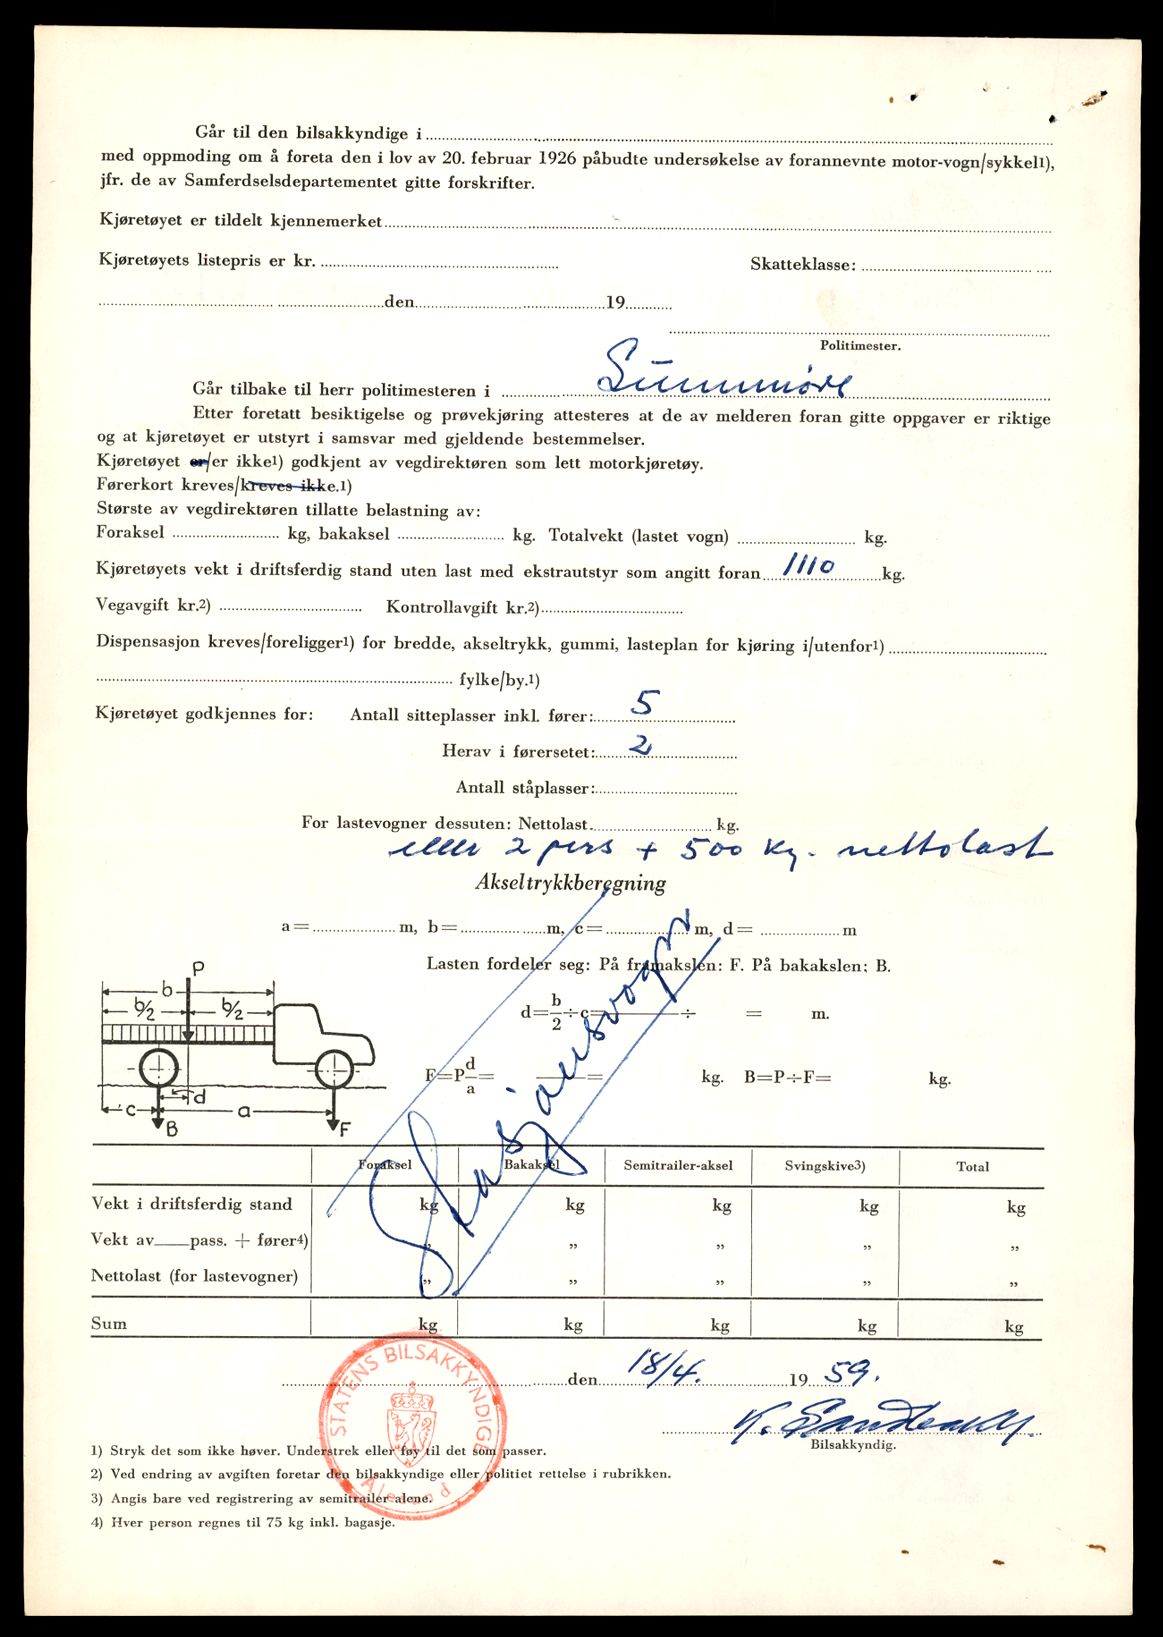 Går til den bilsakkyndige i
med oppmoding om å foreta den i lov av 20. februar 1926 påbudte undersøkelse av forannevnte motor-vogn/sykkel1),
jfr. de av Samferdselsdepartementet gitte forskrifter.
Kjøretøyet er tildelt kjennemerket
Kjøretøyets listepris er kr. Skatteklasse:
den 19
Politimester.
Går tilbake til herr politimesteren i Sunnmøre
Etter foretatt besiktigelse og prøvekjøring attesteres at de av melderen foran gitte oppgaver er riktige
og at kjøretøyet er utstyrt i samsvar med gjeldende bestemmelser.
Kjøretøyet er/er ikke1) godkjent av vegdirektøren som lett motorkjøretøy.
Førerkort kreves/kreves ikke.1)
Største av vegdirektøren tillatte belastning av:
Foraksel kg, bakaksel kg. Totalvekt (lastet vogn) kg.
Kjøretøyets vekt i driftsferdig stand uten last med ekstrautstyr som angitt foran 1110 kg.
Vegavgift kr.2) Kontrollavgift kr.2)
Dispensasjon kreves/foreligger1) for bredde, akseltrykk, gummi, lasteplan for kjøring i/utenfor1)
fylke/by.1)
Kjøretøyet godkjennes for: Antall sitteplasser inkl. fører: 5
Herav i førersetet: 2
Antall ståplasser:
For lastevogner dessuten: Nettolast kg.
eller 2 pers + 500 kg. nettolast
Akseltrykkberegning
a = m, b = m, c = m, d = m
Lasten fordeler seg: På framakslen: F. På bakakslen: B.
d = b/2 ÷ c = ÷ = m.
F = P d/a = = kg. B = P ÷ F = kg.
P
b
b/2 b/2
d
c a
B F
Stasjonsvogn
Foraksel Bakaksel Semitrailer-aksel Svingskive3) Total
Vekt i driftsferdig stand kg kg kg kg kg
Vekt av pass. + fører4) „ „ „ „ „
Nettolast (for lastevogner) „ „ „ „ „
Sum kg kg kg kg kg
den 18/4. 19 59.
STATENS BILSAKKYNDIGE
Ålesund
Bilsakkyndig.
1) Stryk det som ikke høver. Understrek eller føy til det som passer.
2) Ved endring av avgiften foretar den bilsakkyndige eller politiet rettelse i rubrikken.
3) Angis bare ved registrering av semitrailer alene.
4) Hver person regnes til 75 kg inkl. bagasje.